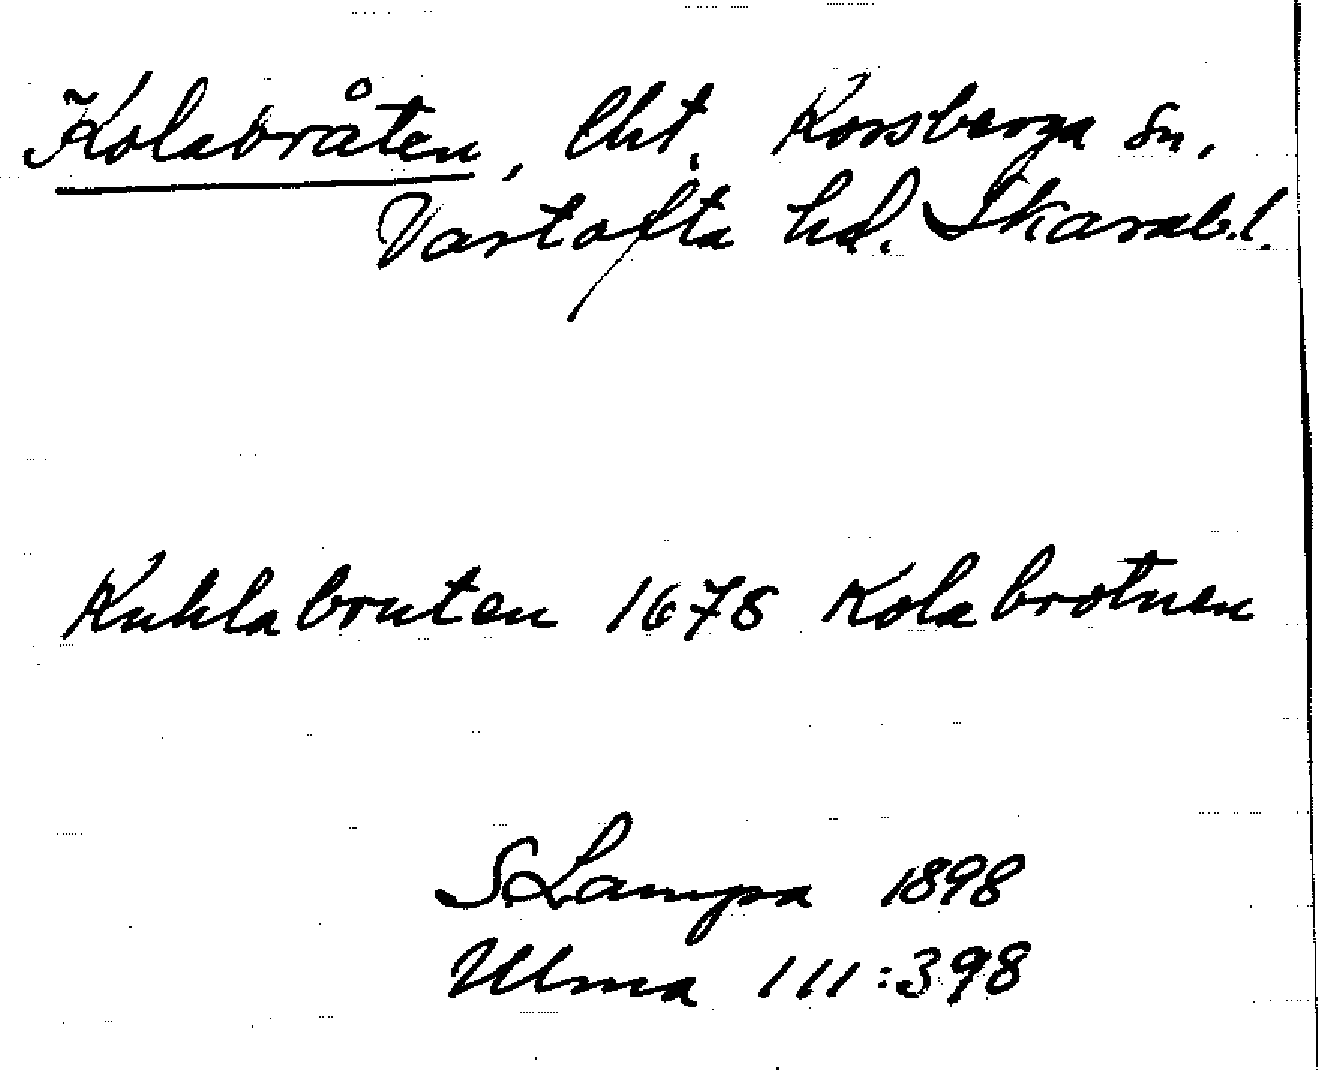 Kolabråten, Cht. Korsberga sn,
Vartofta hd. Skarab.l.
Kuhlabruten 1678 Kolabrotnen
S Lampa 1898
Ulma 111:398